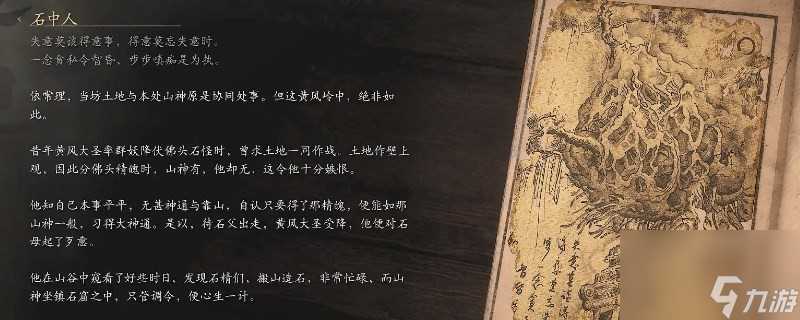 石中人
失意莫谈得意事，得意莫忘失意时。
一念贪私令智昏，步步嗔痴是为执。
依常理，当坊土地与本处山神原是协同处事。但这黄风岭中，绝非如
此。
昔年黄风大圣率群妖降伏佛头石怪时，曾求土地一同作战。土地作壁上
观，因此分佛头精魄时，山神有，他却无，这令他十分嫉恨。
他知自己本事平平，无甚神通与靠山，自认只要得了那精魄，便能如那
山神一般，习得大神通。是以，待石父出走，黄风大圣受降，他便对石
母起了歹意。
他在山谷中窥看了好些时日，发现石精们，搬山造石，非常忙碌，而山
神坐镇石窟之中，只管调令，便心生一计。
九游